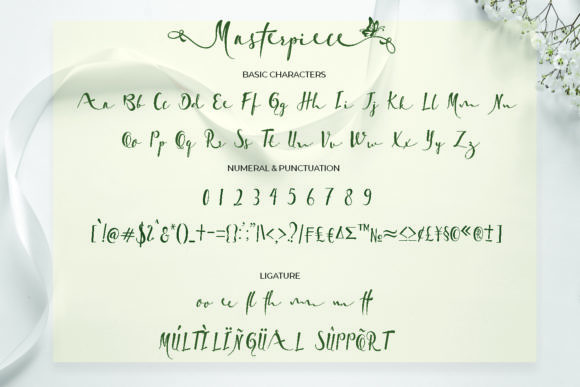 Masterpiece
BASIC CHARACTERS
Aa Bb Cc Dd Ee Ff Gg Hh Ii Jj Kk Ll Mm Nn
Oo Pp Qq Rr Ss Tt Uu Vv Ww Xx Yy Zz
NUMERAL & PUNCTUATION
0 1 2 3 4 5 6 7 8 9
LIGATURE
oo ee fl th mm nn tt
MÚLTÌLÏÑGÜAL SÙPPÕRT